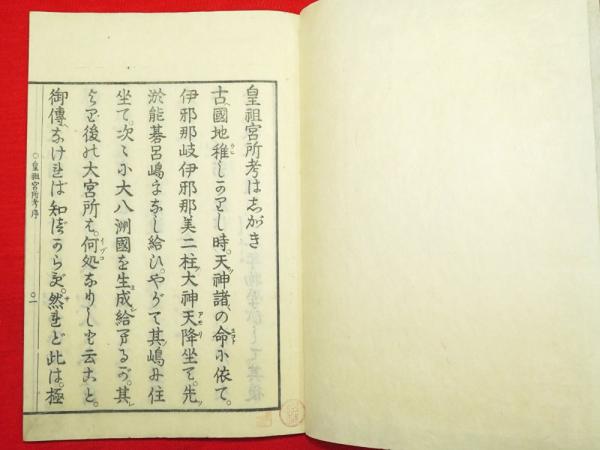 皇祖宮所考はしがき
古國地稚しかりし時。天神諸の命に依て。
伊邪那岐伊邪那美二柱大神天降坐て。先
淤能碁呂嶋をなし給ひ。やがて其嶋に住
坐て。次々に大八洲國を生成給へるが。其
より後の大宮所は。何処なりしとも云こと。
御傳なければ知べからず。然れど此は。極
○皇祖宮所考序
○一